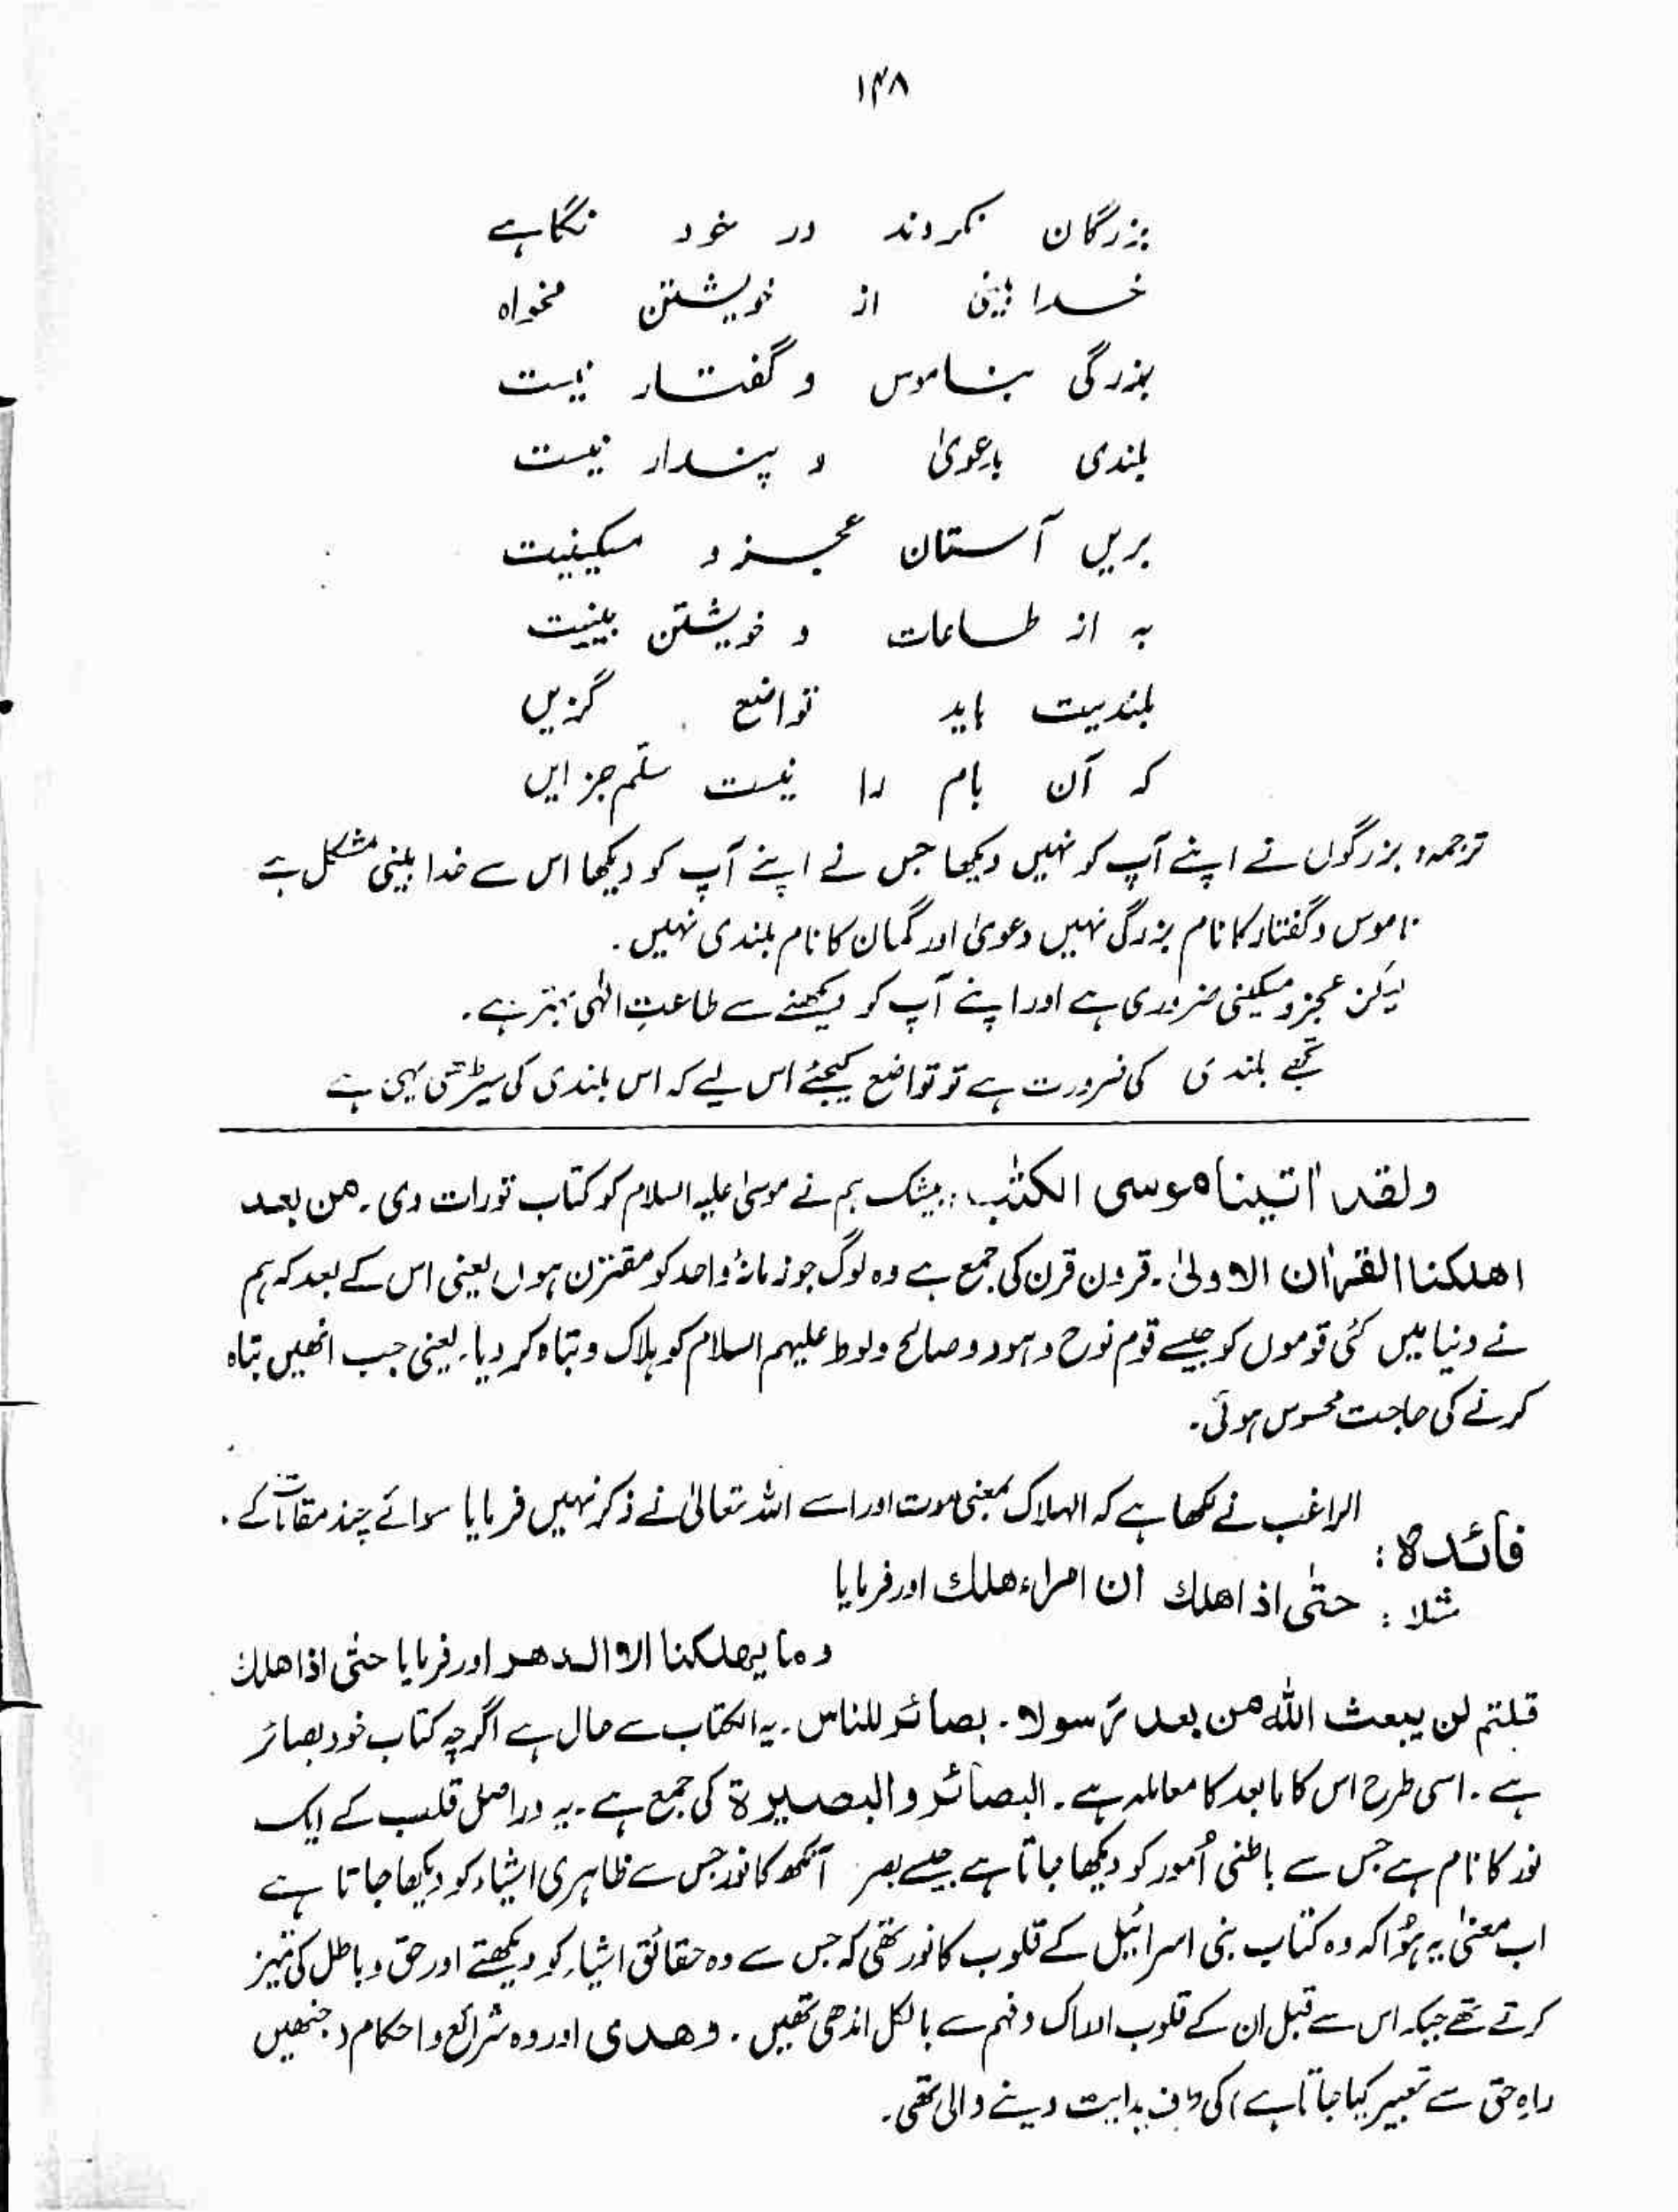 ۱۴۸
بزرگان نکردند در خود نگاہے
خدا بینی از خویشتن مخواہ
بزرگی بناموس و گفتار نیست
بلندی بدعویٰ و پندار نیست
بریں آستان عجز و مسکینیت
بہ از طاعات و خویشتن بینیت
بلندیت باید تواضع گزیں
کہ آن بام را نیست سلّم جز ایں
ترجمہ: بزرگوں نے اپنے آپ کو نہیں دیکھا جس نے اپنے آپ کو دیکھا اس سے خدا بینی مشکل ہے
ناموس و گفتار کا نام بزرگی نہیں دعویٰ اور گمان کا نام بلندی نہیں۔
لیکن عجز و مسکینی ضروری ہے اور اپنے آپ کو دیکھنے سے طاعتِ الٰہی بہتر ہے۔
تجھے بلندی کی ضرورت ہے تو تواضع کیجئے اس لیے کہ اس بلندی کی سیڑھی یہی ہے
ولقد اٰتینا موسی الکتٰب: بیشک ہم نے موسیٰ علیہ السلام کو کتاب تورات دی۔ من بعد
اھلکنا القرٰان الاولیٰ۔ قرون قرن کی جمع ہے وہ لوگ جو زمانۂ واحد کو مقترن ہوں یعنی اس کے بعد کہ ہم
نے دنیا میں کئی قوموں کو جیسے قوم نوح و ہود و صالح و لوط علیہم السلام کو ہلاک و تباہ کر دیا۔ یعنی جب انھیں تباہ
کرنے کی حاجت محسوس ہوئی۔
فائدہ: الراغب نے لکھا ہے کہ الہلاک بمعنی موت اور اسے اللہ تعالیٰ نے ذکر نہیں فرمایا سوائے چند مقامات کے۔
مثلا: حتٰی اذا ھلك ان امراء ھلك اور فرمایا
وما یھلکنا الا الدھر اور فرمایا حتٰی اذا ھلك
قلتم لن یبعث اللہ من بعد رسولا۔ بصائر للناس۔ یہ الکتاب سے حال ہے اگرچہ کتاب خود بصائر
ہے۔ اسی طرح اس کا مابعد کا معاملہ ہے۔ البصائر و البصیرة کی جمع ہے۔ یہ دراصل قلب کے ایک
نور کا نام ہے جس سے باطنی اُمور کو دیکھا جاتا ہے جیسے بصر آنکھ کا نور جس سے ظاہری اشیاء کو دیکھا جاتا ہے
اب معنیٰ یہ ہُوا کہ وہ کتاب بنی اسرائیل کے قلوب کا نور تھی کہ جس سے وہ حقائق اشیاء کو دیکھتے اور حق و باطل کی تمیز
کرتے تھے جبکہ اس سے قبل ان کے قلوب ادراک و فہم سے بالکل اندھی تھیں۔ وھدی اور وہ شرائع و احکام (جنھیں
راہِ حق سے تعبیر کیا جاتا ہے) کی طرف ہدایت دینے والی تھی۔